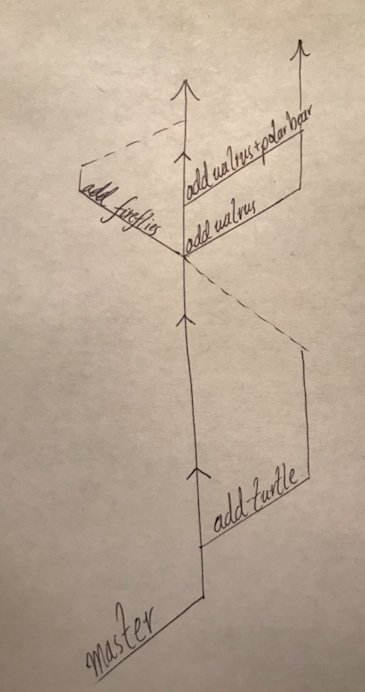 add walrus+polar bear
add fireflies
add walrus
add turtle
master